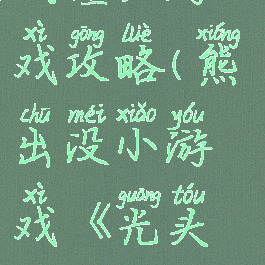 xì gōng lüè xióng
戏攻略(熊
chū méi xiǎo yóu
出没小游
xì guāng tóu
戏《光头